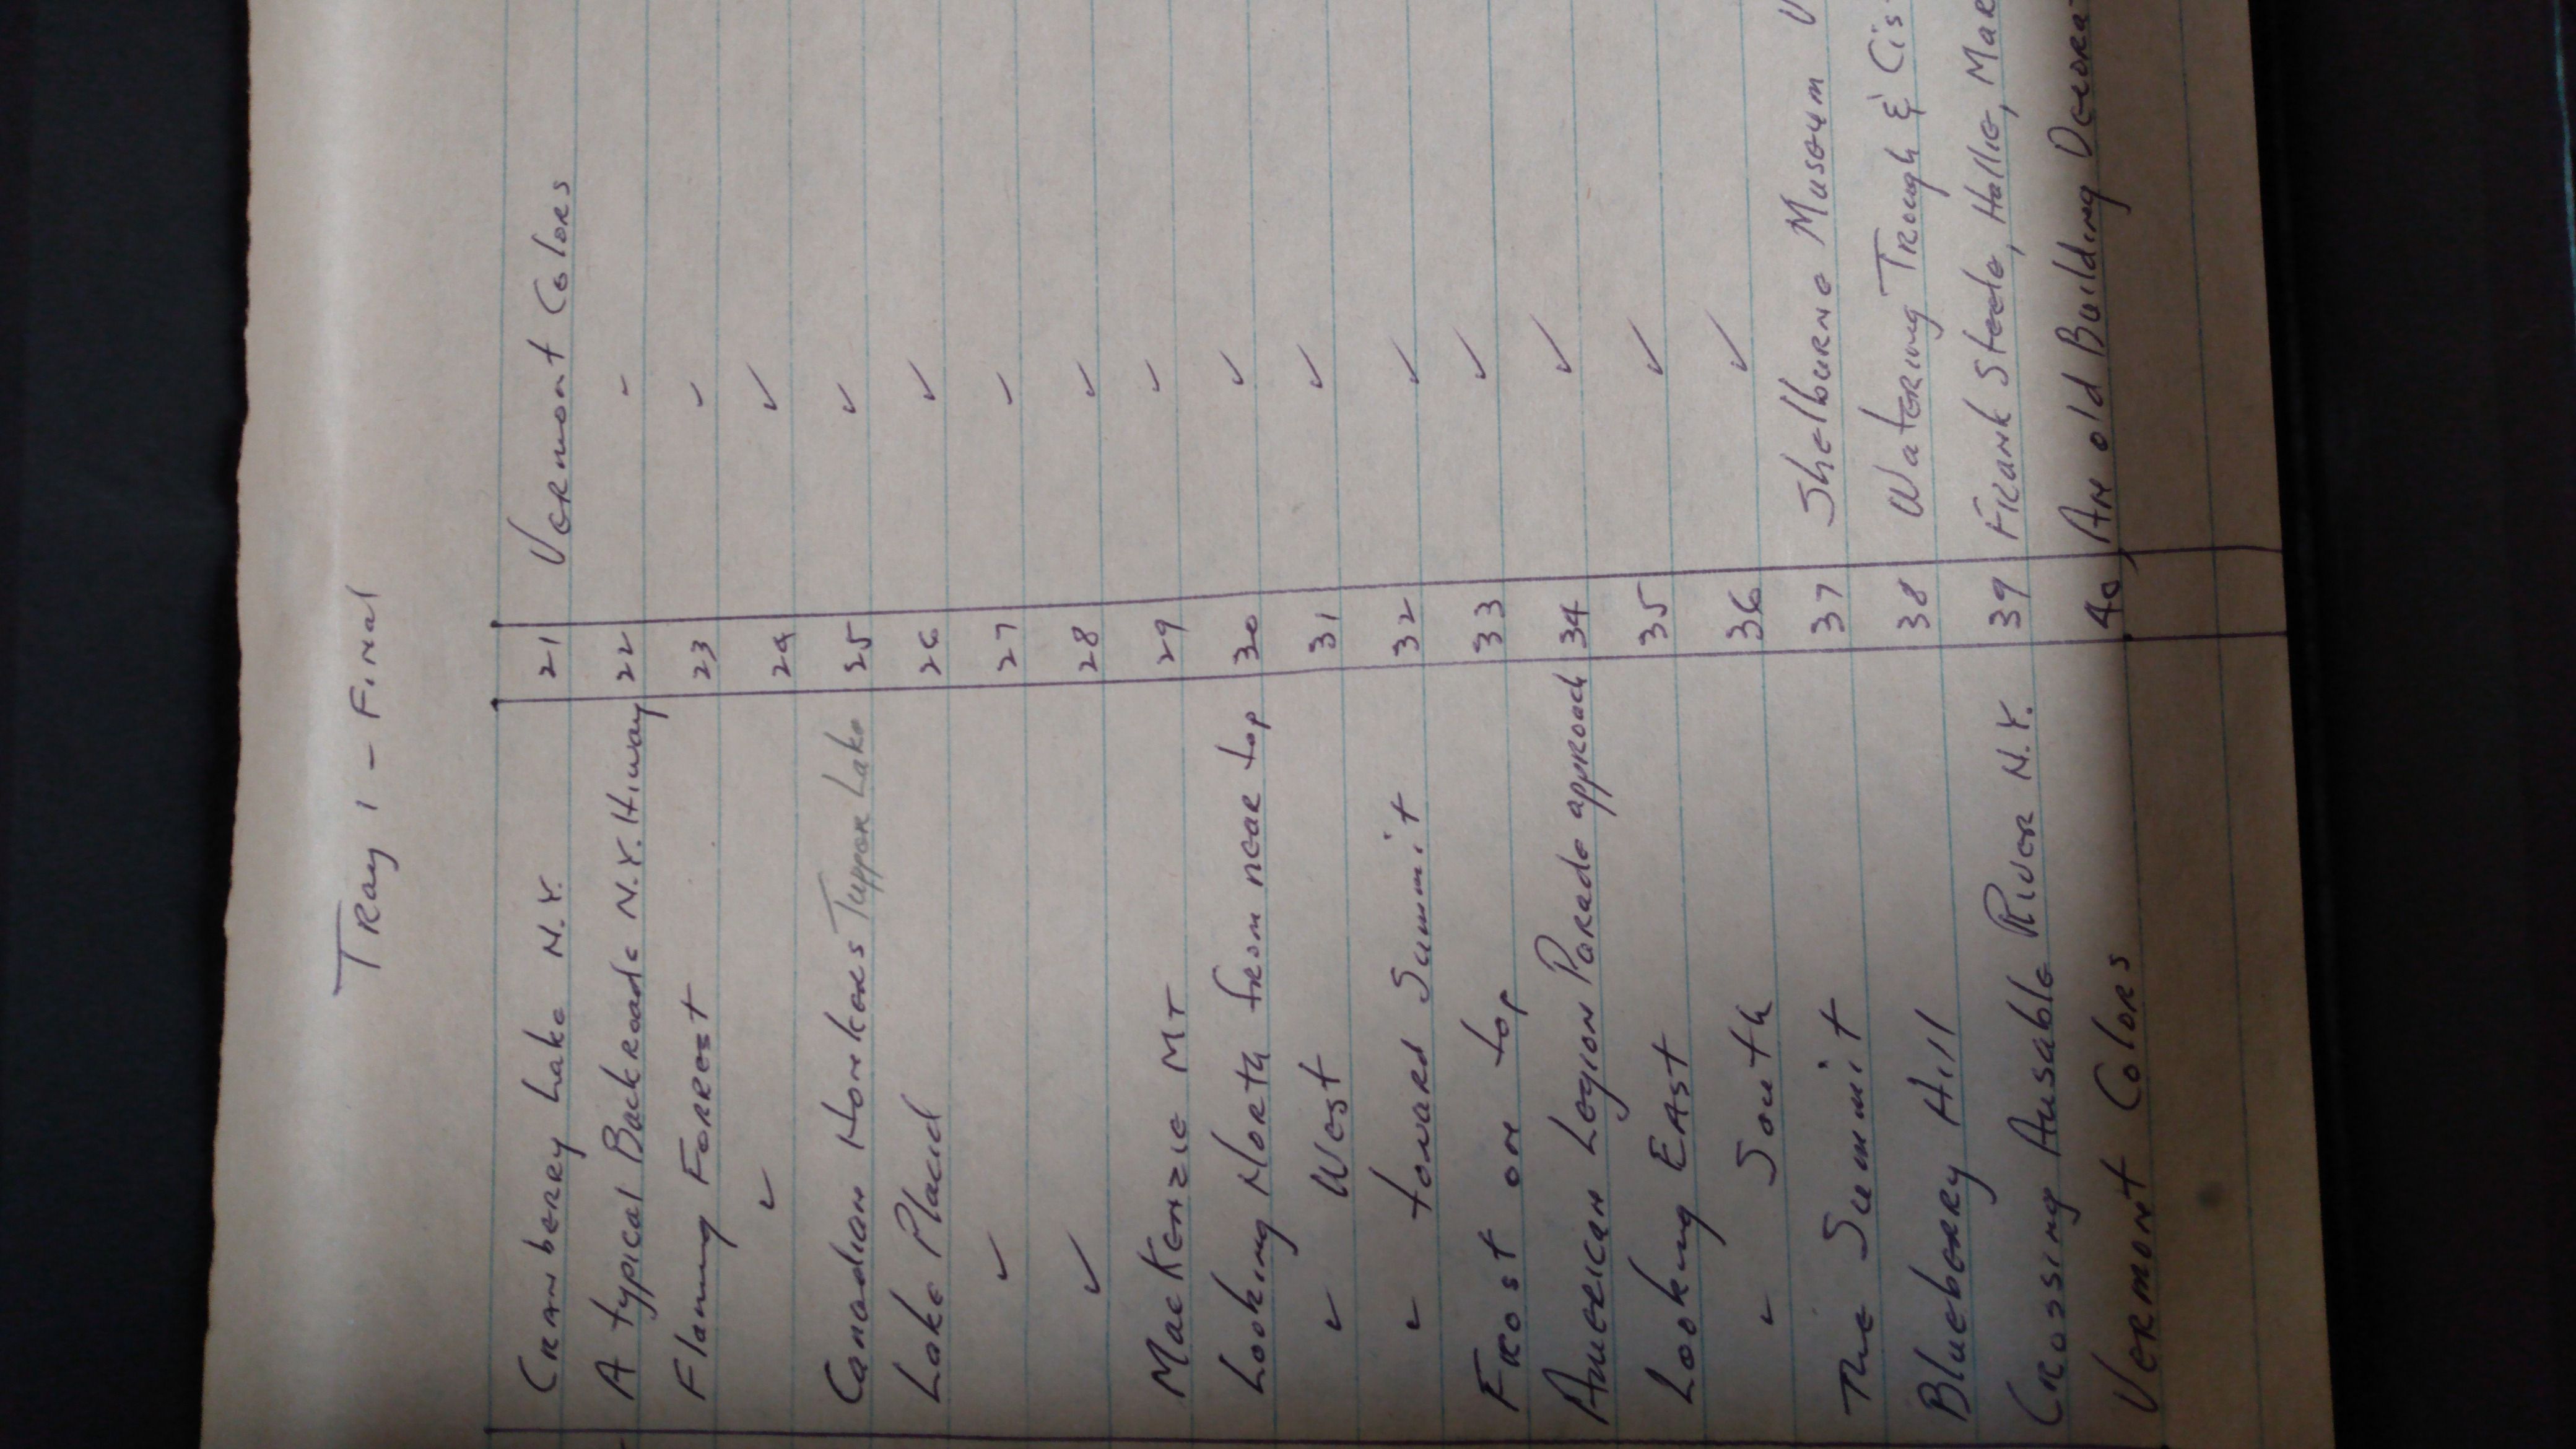 Tray 1 - Final
Cranberry Lake N.Y. 21 Vermont Colors
A typical Backroads N.Y. Hiway 22 ✓
Flaming Forrest 23 ✓
✓ 24 ✓
Canadian Honkers Tupper Lake 25 ✓
Lake Placid 26 ✓
✓ 27 ✓
✓ 28 ✓
MacKenzie Mt 29 ✓
Looking North from near top 30 ✓
✓ West 31 ✓
✓ toward Summit 32 ✓
Frost on top 33 ✓
American Legion Parade approach 34 ✓
Looking East 35 ✓
✓ South 36 ✓
The Summit 37 Shelburne Museum V
Blueberry Hill 38 Watering Trough & Cis
Crossing Ausable River N.Y. 39 Frank Steele, Hallie, Mar
Vermont Colors 40 An old Building Decora